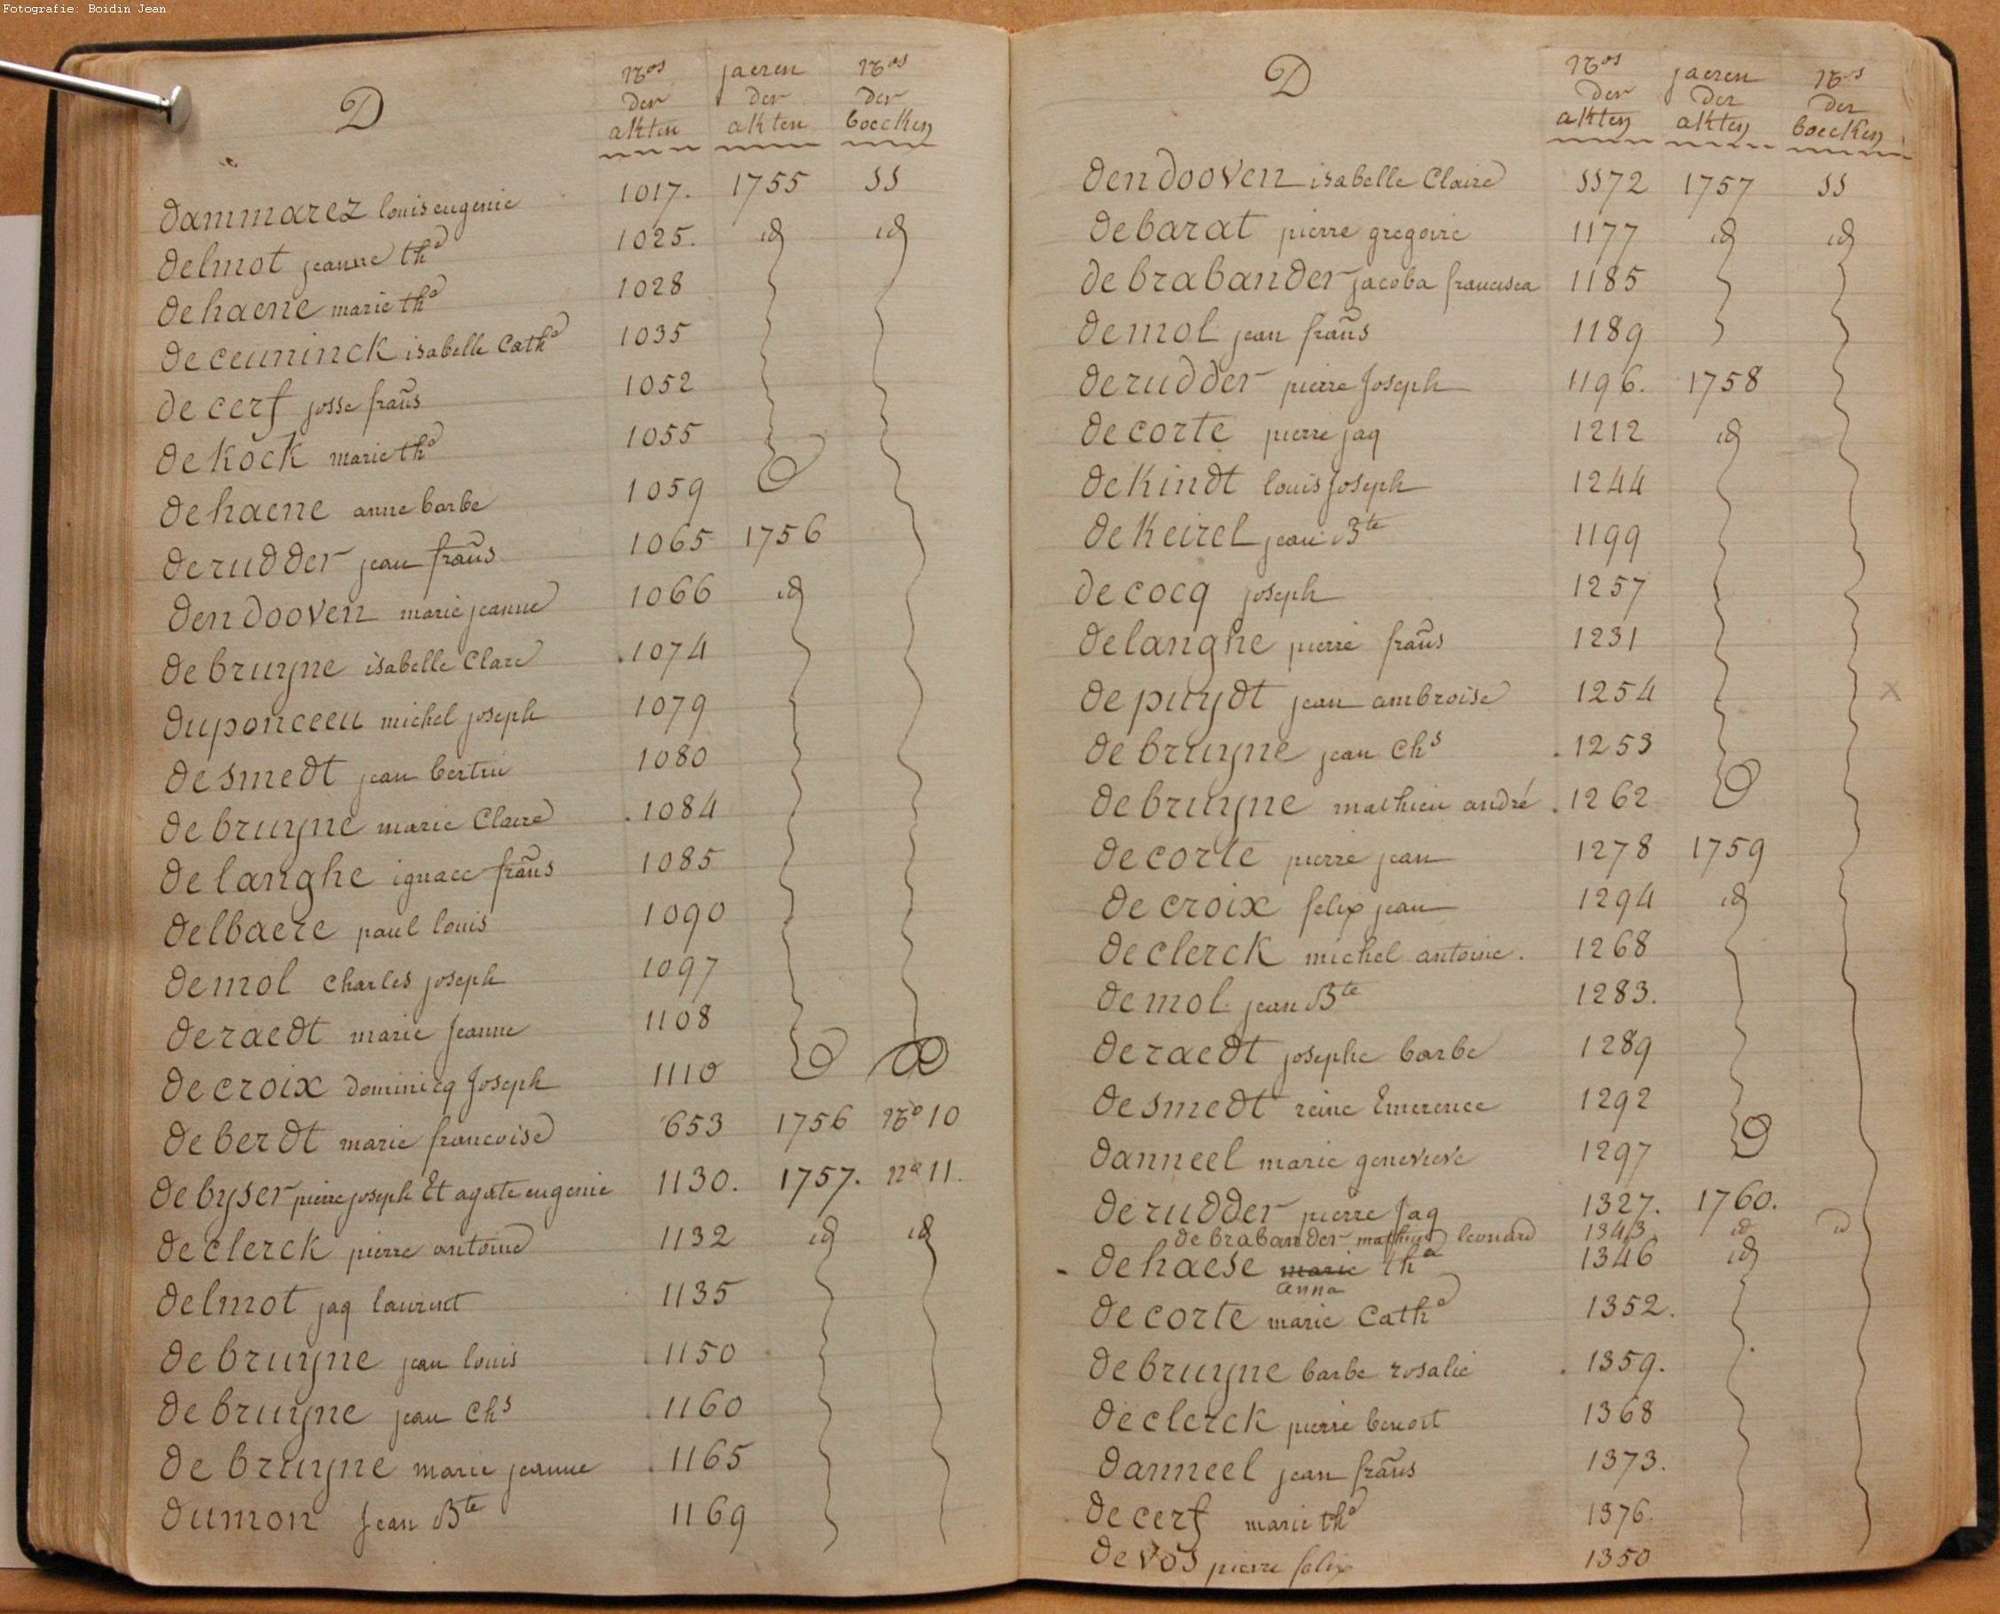 Fotografie: Boidin Jean
D
Nos jaeren Nos
der der der
akten akten boecken
dammarez louis eugenie 1017. 1755 SS
delmot jeanne tha 1025. id id
dehaene marie tha 1028
de ceuninck isabelle Catha 1035
de cerf josse frans 1052
de kock marie tha 1055
de haene anne barbe 1059
de rudder jean frans 1065 1756
den dooven marie jeanne 1066 id
de bruyne isabelle Clare .1074
duponceeu michel joseph 1079
de smedt jean bertin 1080
de bruyne marie Claire .1084
de langhe ignace frans 1085
delbaere paul louis 1090
demol charles joseph 1097
deraedt marie Jeanne 1108
decroix dominicq Joseph 1110
de berdt marie francoise 653 1756 No 10
de byser pierre joseph Et agate eugenie 1130. 1757. no 11.
de clerck pierre antoine 1132 id id
delmot jaq laurent 1135
de bruyne jean louis .1150
de bruyne jean Chs .1160
de bruyne marie jeanne .1165
dumon Jean Bte 1169
D
Nos jaeren Nos
der der der
akten akten boecken
den dooven isabelle Claire SS72 1757 SS
debarat pierre gregoire 1177 id id
de brabander jacoba francisca 1185
demol jean frans 1189
derudder pierre Joseph 1196. 1758
decorte pierre jaq 1212 id
dekindt louis Joseph 1244
dekeirel jean Bte 1199
decocq joseph 1257
delanghe pierre frans 1231
depuydt jean ambroise 1254 x
de bruyne jean Chs .1253
de bruyne mathieu andré .1262
decorte pierre jean 1278 1759
decroix felix jean 1294 id
declerck michel antoine. 1268
demol jean Bte 1283.
deraedt josephe barbe 1289
desmedt reine Emerence 1292
danneel marie genevieve 1297
derudder pierre Jaq 1327. 1760.
de brabander mathieu leonard 1343 id id
- dehaese marie tha 1346 id
anna
decorte marie Catha 1352.
de bruyne barbe rosalie .1359.
declerck pierre benoit 1368
danneel jean frans 1373.
decerf marie tha 1376.
devos pierre felix 1350